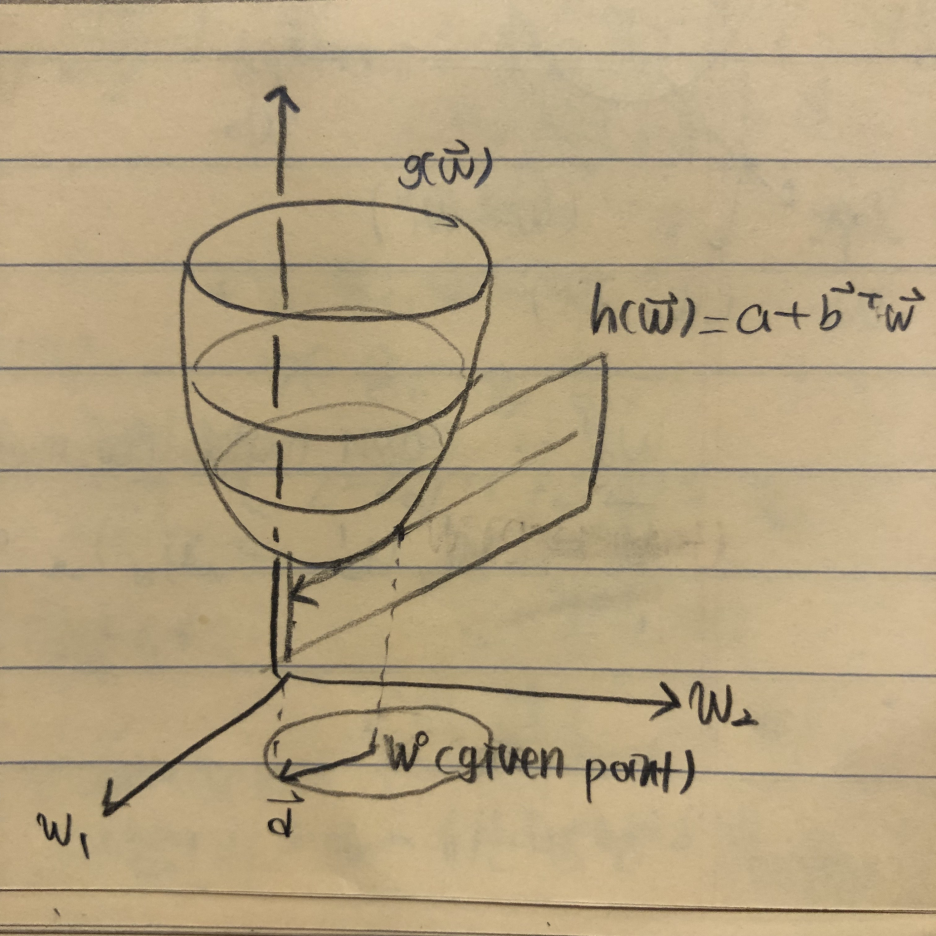 g(w⃗)
h(w⃗)=a+b⃗ᵀw⃗
w₂
w° (given point)
d⃗
w₁